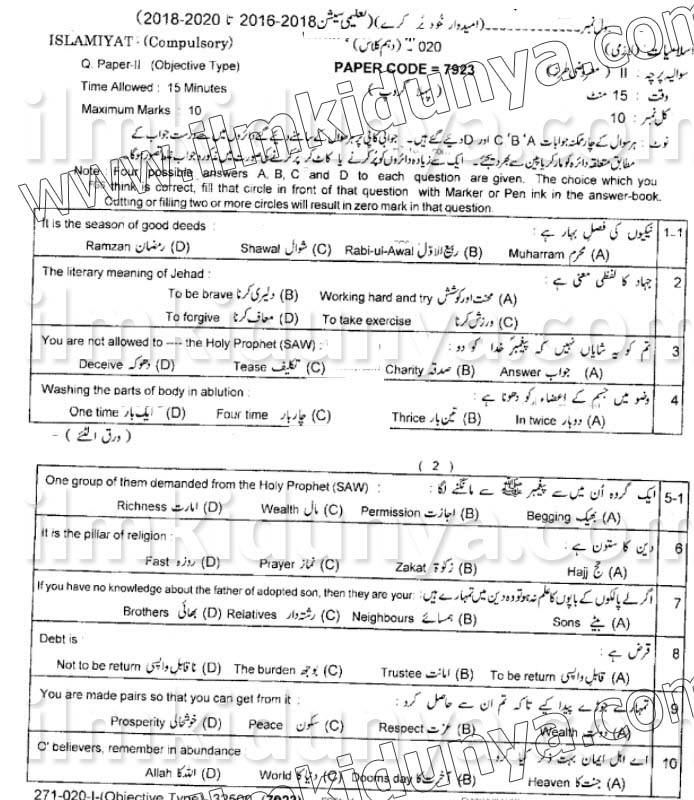 رول نمبر (امیدوار خود پُر کرے) (تعلیمی سیشن 2018-2016 تا 2020-2018)
ISLAMIYAT - (Compulsory) 020 (دہم کلاس) اسلامیات (لازمی)
Q. Paper-II (Objective Type) PAPER CODE = 7923 سوالیہ پرچہ : II (معروضی طرز)
Time Allowed : 15 Minutes (پہلا گروپ) وقت : 15 منٹ
Maximum Marks : 10 کل نمبر : 10
نوٹ : ہر سوال کے چار ممکنہ جوابات A ' B ' C اور D دیئے گئے ہیں۔ جوابی کاپی پر ہر سوال کے سامنے دیئے گئے دائروں میں سے درست جواب کے
مطابق متعلقہ دائرہ کو مارکر یا پین سے بھر دیجئے۔ ایک سے زیادہ دائروں کو پُر کرنے یا کاٹ کر پُر کرنے کی صورت میں مذکورہ جواب غلط تصور ہوگا
Note : Four possible answers A, B, C and D to each question are given. The choice which you
think is correct, fill that circle in front of that question with Marker or Pen ink in the answer-book.
Cutting or filling two or more circles will result in zero mark in that question.
It is the season of good deeds : نیکیوں کی فصلِ بہار ہے : 1-1
Ramzan رمضان (D) Shawal شوال (C) Rabi-ul-Awal ربیع الاوّل (B) Muharram محرم (A)
The literary meaning of Jehad : جہاد کا لفظی معنیٰ ہے : 2
To be brave دلیری کرنا (B) Working hard and try محنت اور کوشش (A)
To forgive معاف کرنا (D) To take exercise ورزش کرنا (C)
You are not allowed to ---- the Holy Prophet (SAW) : تم کو یہ شایاں نہیں کہ پیغمبرِ خدا کو دو : 3
Deceive دھوکہ (D) Tease تکلیف (C) Charity صدقہ (B) Answer جواب (A)
Washing the parts of body in ablution : وضو میں جسم کے اعضاء کو دھونا ہے : 4
One time ایک بار (D) Four time چار بار (C) Thrice تین بار (B) In twice دو بار (A)
(ورق الٹئے) -
( 2 )
One group of them demanded from the Holy Prophet (SAW) : ایک گروہ اُن میں سے پیغمبر ﷺ سے مانگنے لگا : 5-1
Richness امارت (D) Wealth مال (C) Permission اجازت (B) Begging بھیک (A)
It is the pillar of religion : دین کا ستون ہے : 6
Fast روزہ (D) Prayer نماز (C) Zakat زکوٰۃ (B) Hajj حج (A)
If you have no knowledge about the father of adopted son, then they are your: اگر لے پالکوں کے باپوں کا علم نہ ہو تو وہ دین میں تمہارے ہیں: 7
Brothers بھائی (D) Relatives رشتہ دار (C) Neighbours ہمسائے (B) Sons بیٹے (A)
Debt is : قرض ہے : 8
Not to be return ناقابلِ واپسی (D) The burden بوجھ (C) Trustee امانت (B) To be return قابلِ واپسی (A)
You are made pairs so that you can get from it : تمہارے جوڑے پیدا کیے تاکہ تم ان سے حاصل کرو : 9
Prosperity خوشحالی (D) Peace سکون (C) Respect عزت (B) Wealth دولت (A)
O' believers, remember in abundance : اے اہلِ ایمان بہت ذکر کیا کرو 10
Allah اللہ کا (D) World دنیا کا (C) Dooms day آخرت کا (B) Heaven جنت کا (A)
271-020-I-(Objective Type)
www.ilmkidunya.com
ilmkidunya.com